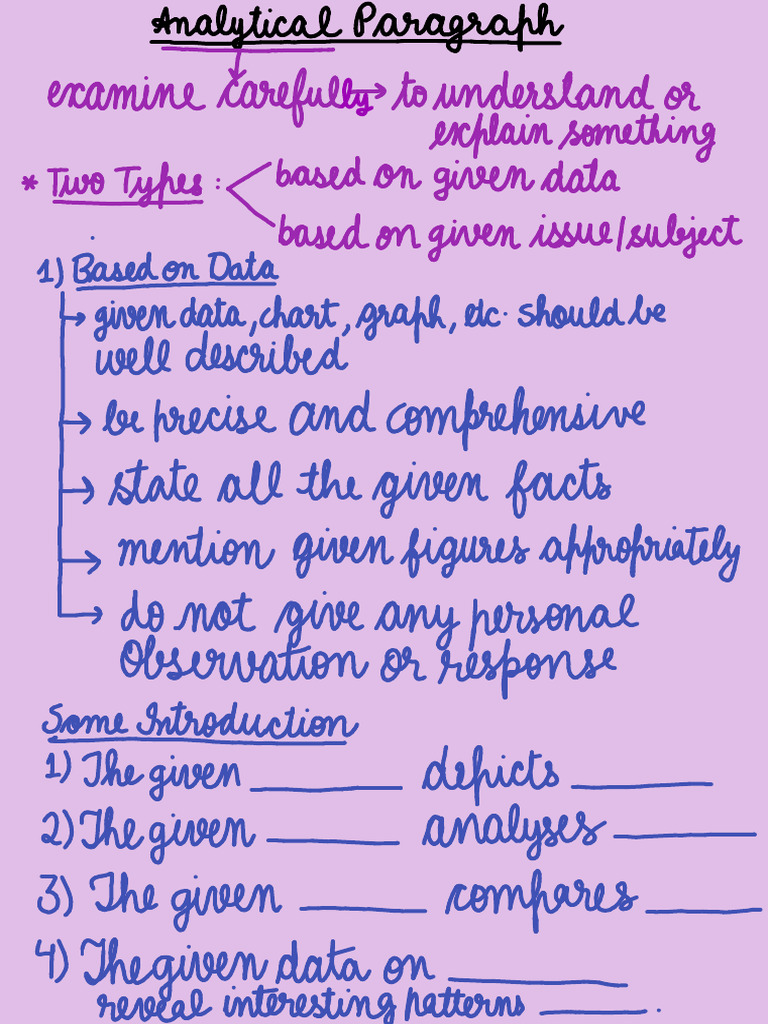 Analytical Paragraph
examine carefully → to understand or
explain something
* Two Types :
based on given data
based on given issue/subject
1) Based on Data
→ given data, chart, graph, etc. should be
well described
→ be precise and comprehensive
→ state all the given facts
→ mention given figures appropriately
→ do not give any personal
observation or response
Some Introduction
1) The given ________ depicts ________
2) The given ________ analyses ________
3) The given ________ compares ________
4) The given data on ________
reveal interesting patterns ________.